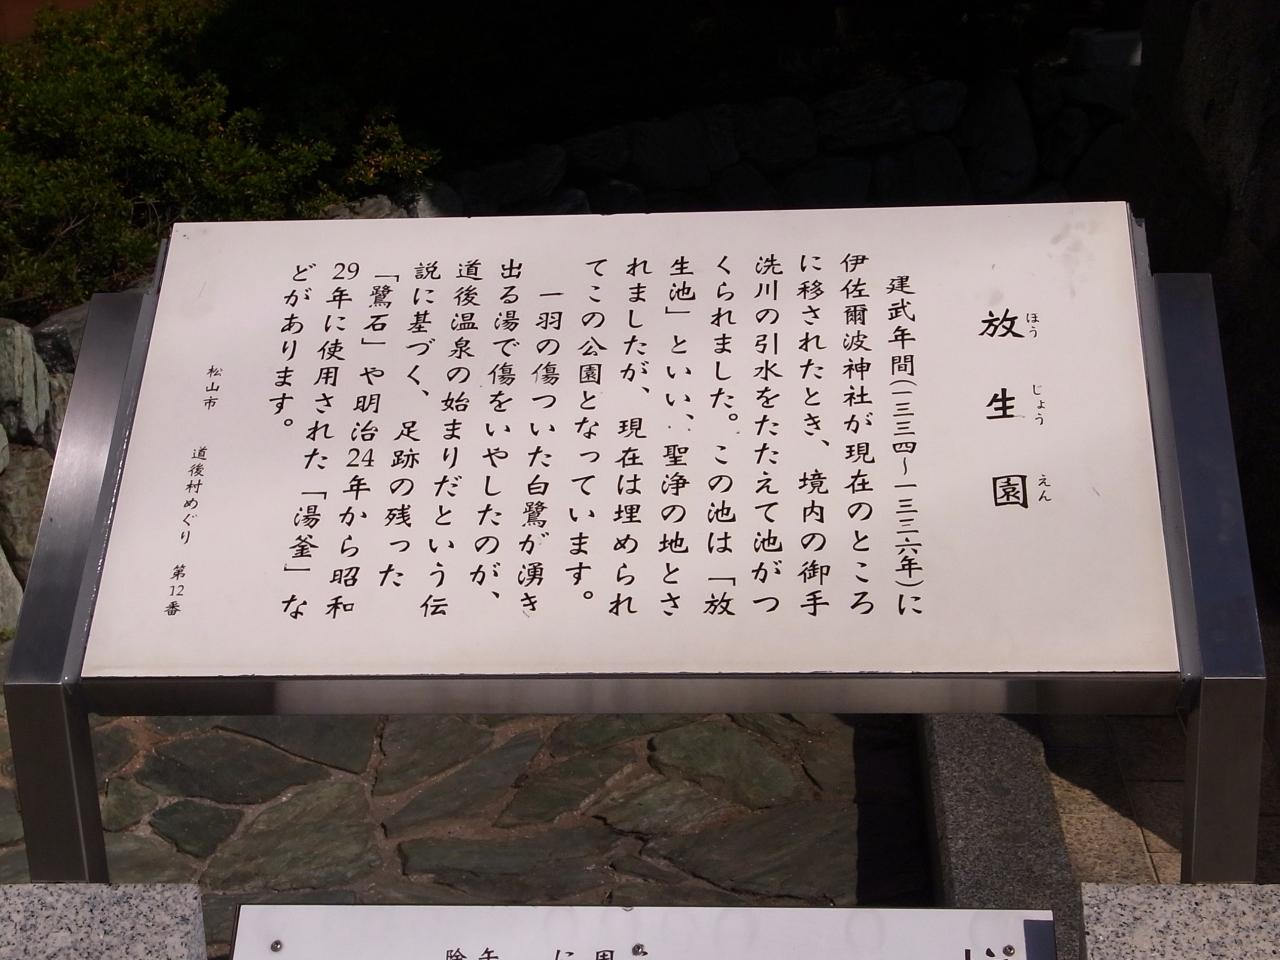 放生園
ほうじょうえん
建武年間(一三三四〜一三三六年)に
伊佐爾波神社が現在のところ
に移されたとき、境内の御手
洗川の引水をたたえて池がつ
くられました。この池は「放
生池」といい、聖浄の地とさ
れましたが、現在は埋められ
てこの公園となっています。
一羽の傷ついた白鷺が湧き
出る湯で傷をいやしたのが、
道後温泉の始まりだという伝
説に基づく、足跡の残った
「鷺石」や明治24年から昭和
29年に使用された「湯釜」な
どがあります。
松山市 道後村めぐり 第12番